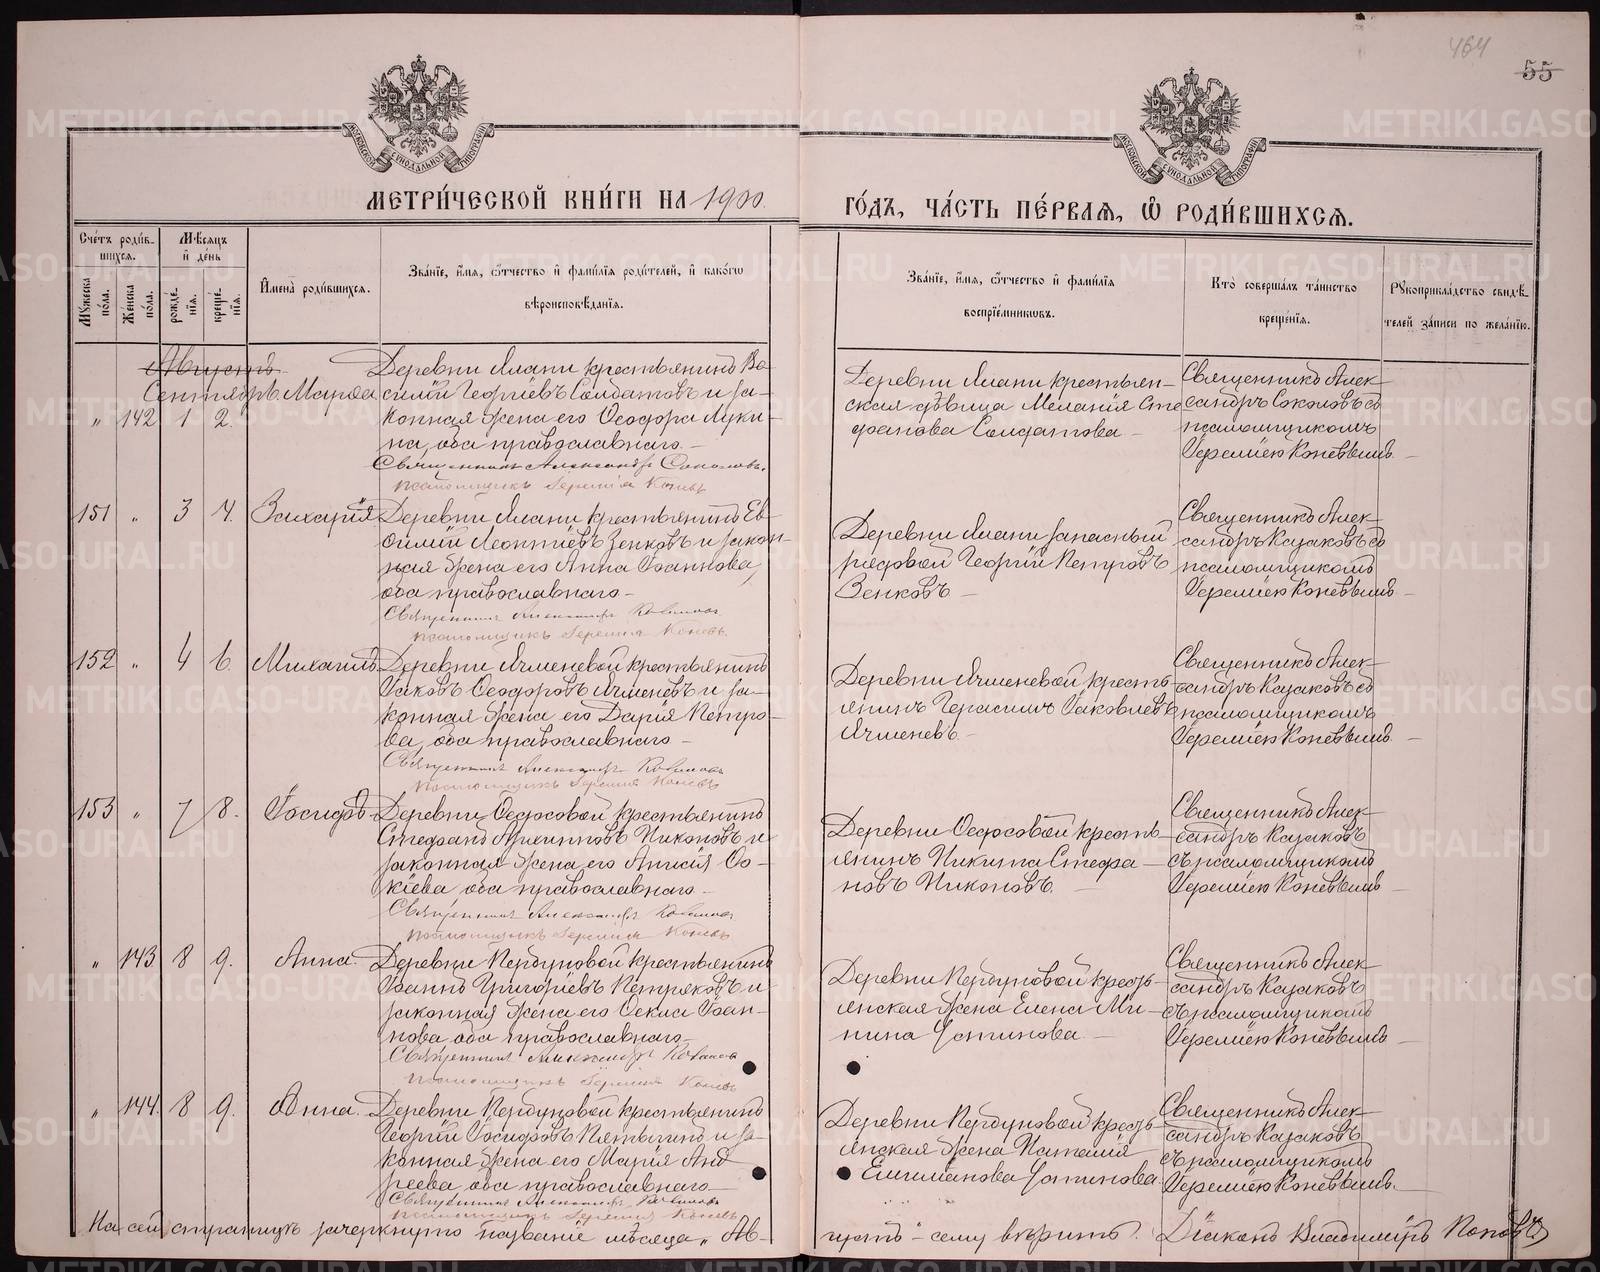 464
55
МОСКОВСКОЙ СУНОДАЛЬНОЙ ТИПОГРАФІИ
МОСКОВСКОЙ СУНОДАЛЬНОЙ ТИПОГРАФІИ
МЕТРИ́ЧЕСКОЙ КНИ́ГИ НА 1900
ГО́ДЪ, ЧА́СТЬ ПЕ́РВАѦ, Ѡ҆ РОДИ́ВШИХСѦ.
Сче́тъ роди́в-
шихсѧ.
Мꙋ́жеска по́ла.
Же́нска по́ла.
Мѣ́сѧцъ
и҆ де́нь
рожде́-
нїѧ.
креще́-
нїѧ.
И҆мена̀ роди́вшихсѧ.
Зва́нїе, и҆́мѧ, ѻ҆́тчество и҆ фамѝлїѧ роди́телей, и҆ како́гѡ
вѣроисповѣ́данїѧ.
Зва́нїе, и҆́мѧ, ѻ҆́тчество и҆ фамѝлїѧ
воспрїе́мникѡвъ.
Кто̀ соверша́лъ та́инство
креще́нїѧ.
Рꙋкоприкла́дство свидѣ́-
телей за́писи по жела́нїю.
Августъ
Сентябрь
„ 142 1 2. Марѳа
Деревни Елани крестьянинъ Ва-
силій Георгіевъ Солдатовъ и за-
конная жена его Ѳеодора Луки-
на, оба православнаго —
Священникъ Александръ Соколовъ.
псаломщикъ Іеремія Коневъ
Деревни Елани крестьян-
ская дѣвица Меланія Сте-
фанова Солдатова —
Священникъ Алек-
сандръ Соколовъ съ
псаломщикомъ
Іереміею Коневымъ —
151 „ 3 4. Захарія
Деревни Елани крестьянинъ Ев-
ѳимій Леонтіевъ Зенковъ и закон-
ная жена его Анна Іоаннова,
оба православнаго —
Священникъ Александръ Казаковъ
псаломщикъ Іеремія Коневъ
Деревни Елани запасный
рядовой Георгій Петровъ
Зенковъ —
Священникъ Алек-
сандръ Казаковъ съ
псаломщикомъ
Іереміею Коневымъ —
152 „ 4 6. Михаилъ
Деревни Ячменевой крестьянинъ
Іаковъ Ѳеодоровъ Ячменевъ и за-
конная жена его Дарія Петро-
ва, оба православнаго —
Священникъ Александръ Казаковъ
псаломщикъ Іеремія Коневъ
Деревни Ячменевой кресть-
янинъ Герасимъ Іаковлевъ
Ячменевъ —
Священникъ Алек-
сандръ Казаковъ съ
псаломщикомъ
Іереміею Коневымъ —
153 „ 7 8. Іосифъ
Деревни Ѳедосовой крестьянинъ
Стефанъ Никоновъ и
законная жена его Анисія Ѳо-
кіева, оба православнаго —
Священникъ Александръ Казаковъ
псаломщикъ Іеремія Коневъ
Деревни Ѳедосовой кресть-
янинъ Никита Стефа-
новъ Никоновъ. —
Священникъ Алек-
сандръ Казаковъ
съ псаломщикомъ
Іереміею Коневымъ —
„ 143 8 9. Анна.
Деревни крестьянинъ
Іоаннъ Григоріевъ Петряковъ и
законная жена его Ѳекла Іоан-
нова, оба православнаго —
Священникъ Александръ Казаковъ
псаломщикъ Іеремія Коневъ
Деревни кресть-
янская жена Елена Ми-
нина Устинова —
Священникъ Алек-
сандръ Казаковъ
съ псаломщикомъ
Іереміею Коневымъ —
„ 144. 8 9. Анна.
Деревни крестьянинъ
Георгій Іосифовъ и за-
конная жена его Марія Анд-
реева, оба православнаго —
Священникъ Александръ Казаковъ
псаломщикъ Іеремія Коневъ
Деревни кресть-
янская жена Наталія
Устинова
Священникъ Алек-
сандръ Казаковъ
съ псаломщикомъ
Іереміею Коневымъ. —
На сей страницѣ зачеркнуто названіе мѣсяца „Ав-
густъ" — сему вѣрить. Діаконъ Владиміръ Поповъ